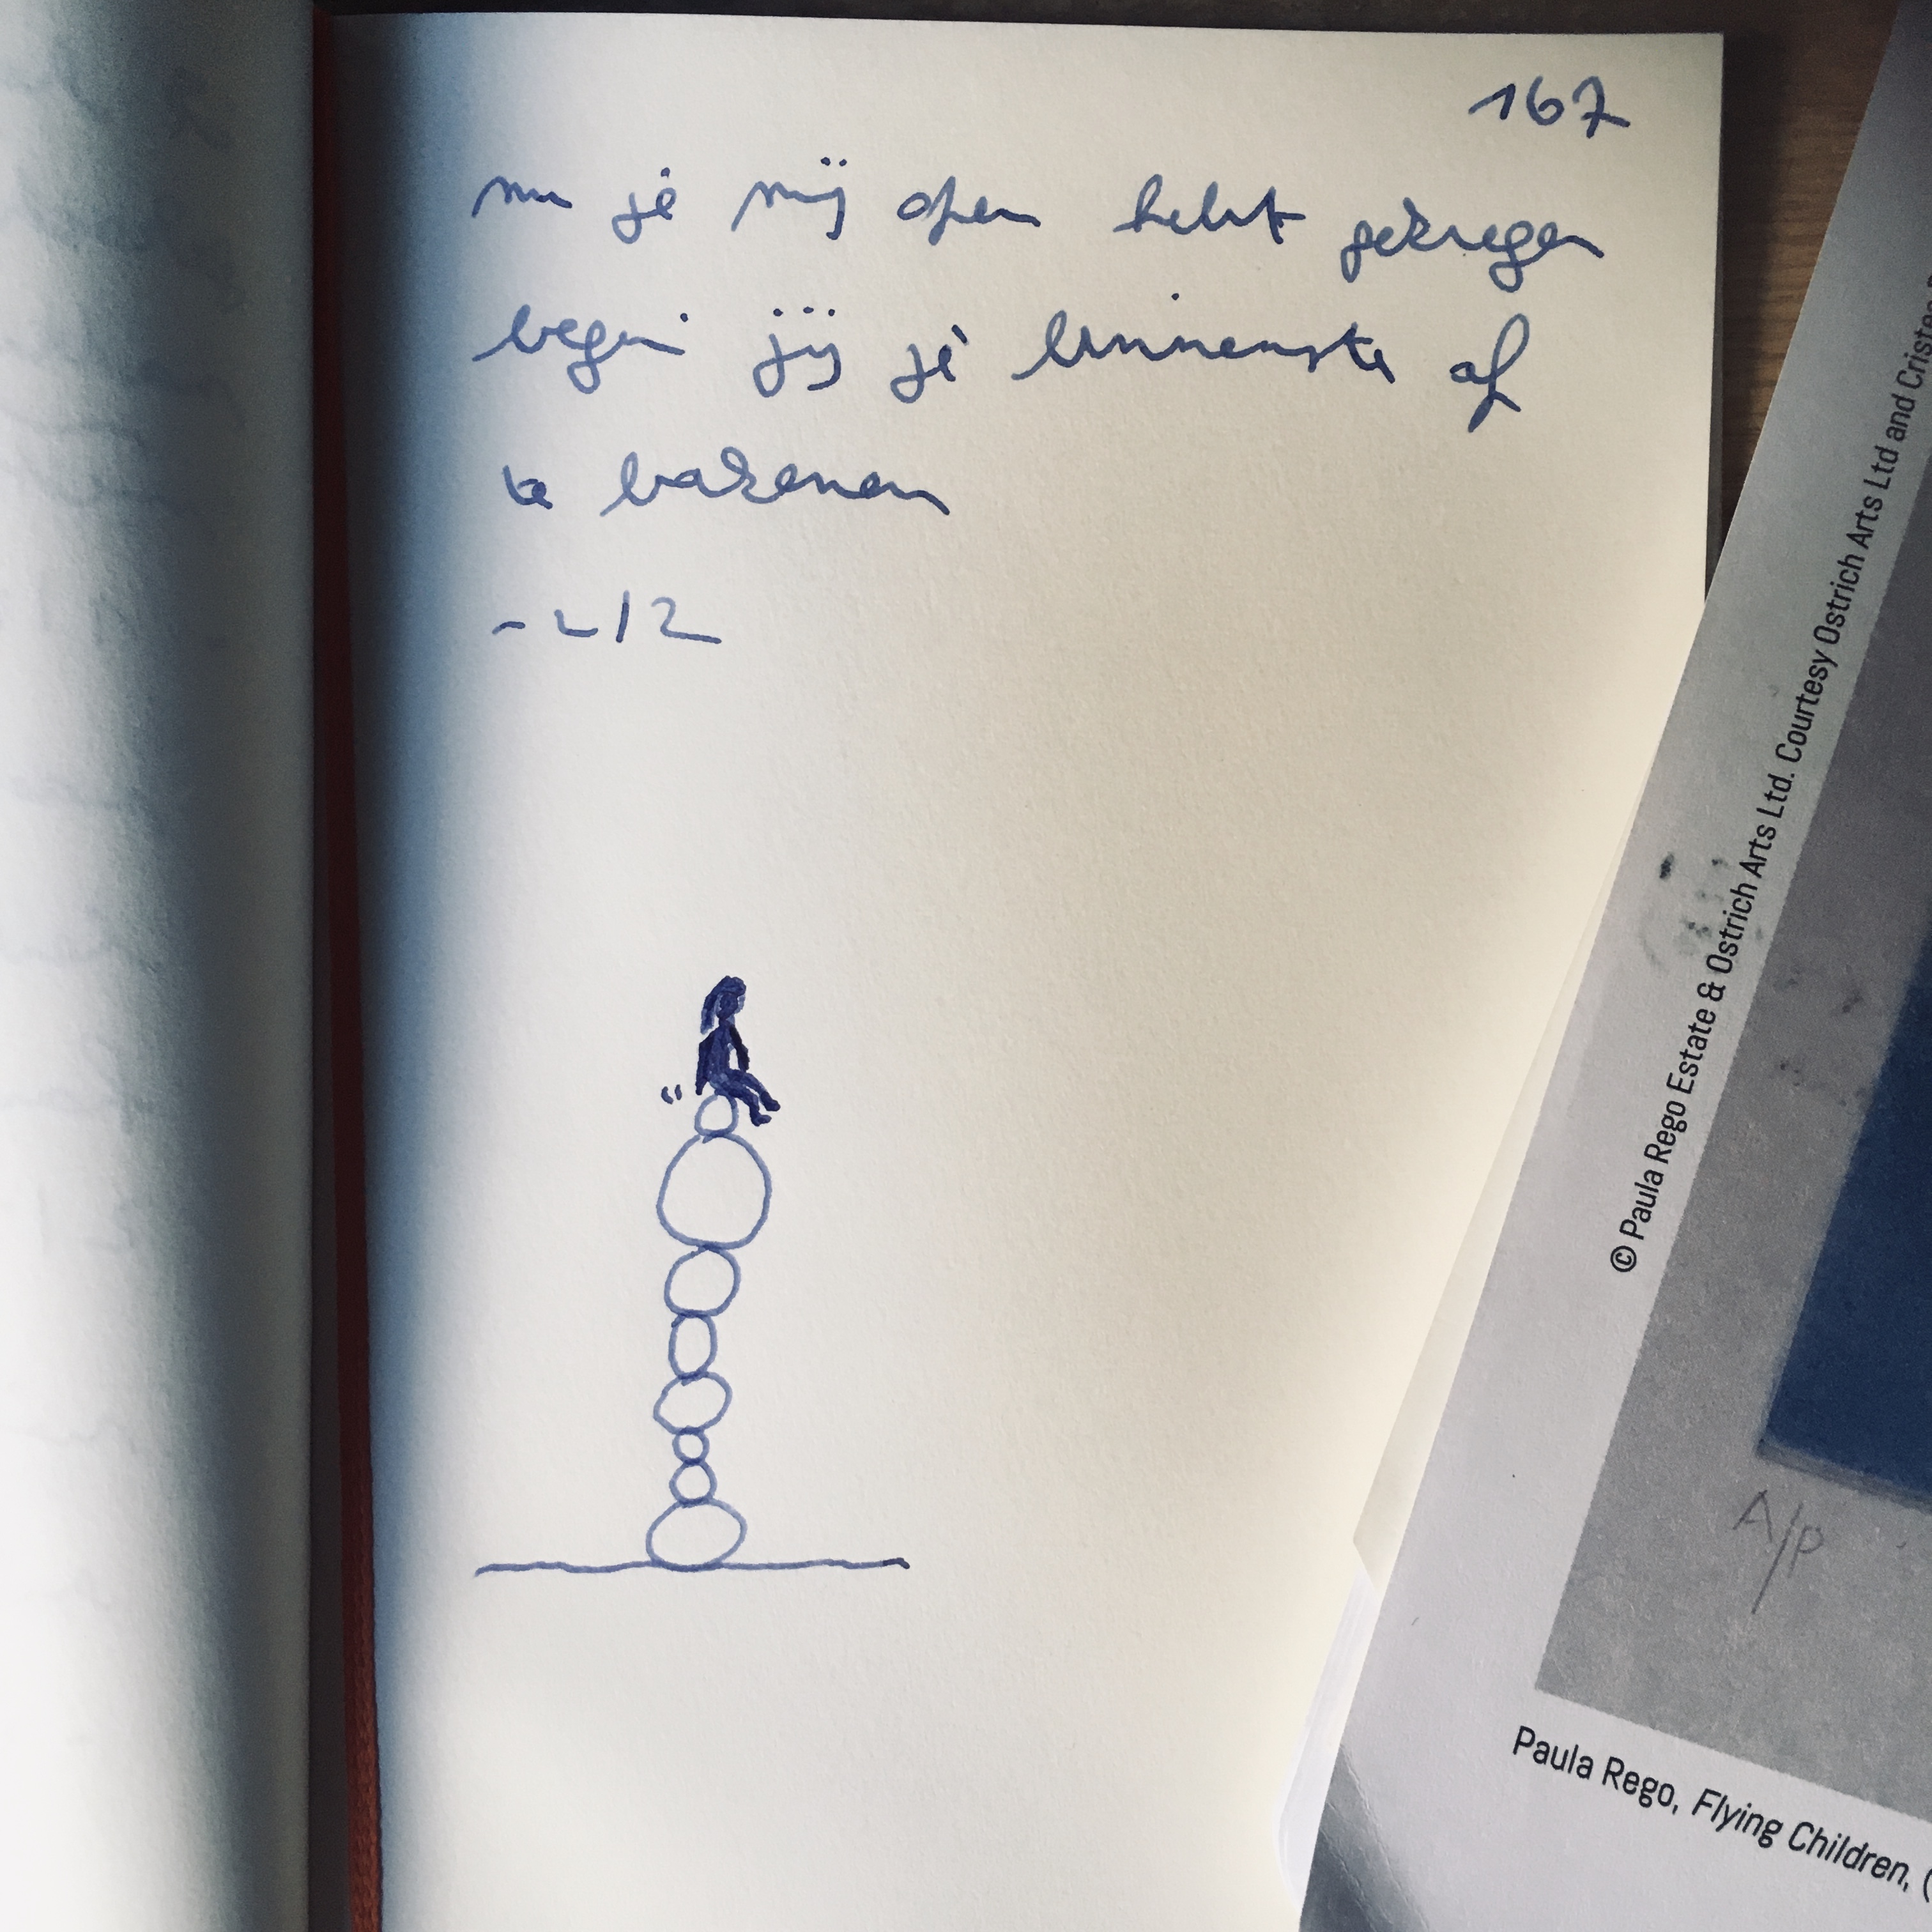 167
nu je mij open hebt gekregen
begin jij je binnenste af
te bakenen
-2/2
© Paula Rego Estate & Ostrich Arts Ltd. Courtesy Ostrich Arts Ltd and Cristea
A/P
Paula Rego, Flying Children, (